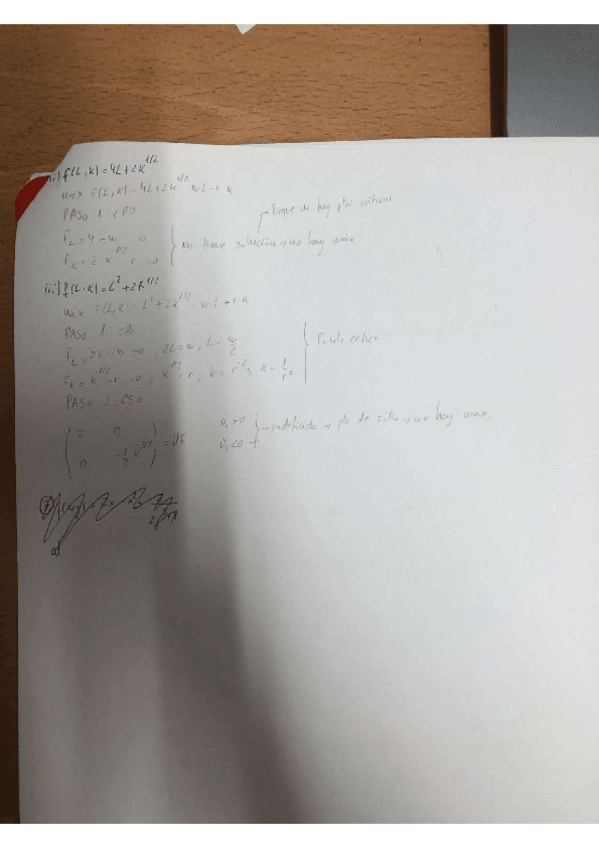 ii) f(L,K) = 4L + 2K^1/2
max F(L,K) = 4L + 2K^1/2 - wL - rK
PASO 1: CPO
Porque no hay ptos críticos
F_L = 4 - w = 0
No tiene solución → no hay máx.
F_K = 2 · K^-1/2 - r = 0
iii) f(L,K) = L^2 + 2K^1/2
máx F(L,K) = L^2 + 2K^1/2 - wL + rK
PASO 1: CPO
F_L = 2L - w = 0, 2L = w, L = w/2
Punto crítico
F_K = K^-1/2 - r = 0, K^-1/2 = r, K = r^-2, K = 1/r^2
PASO 2: CSO
( 2 0
0 -1/2 K^-3/2 ) = HF
D1 > 0
D2 < 0
→ indefinido → pto de silla → no hay max.